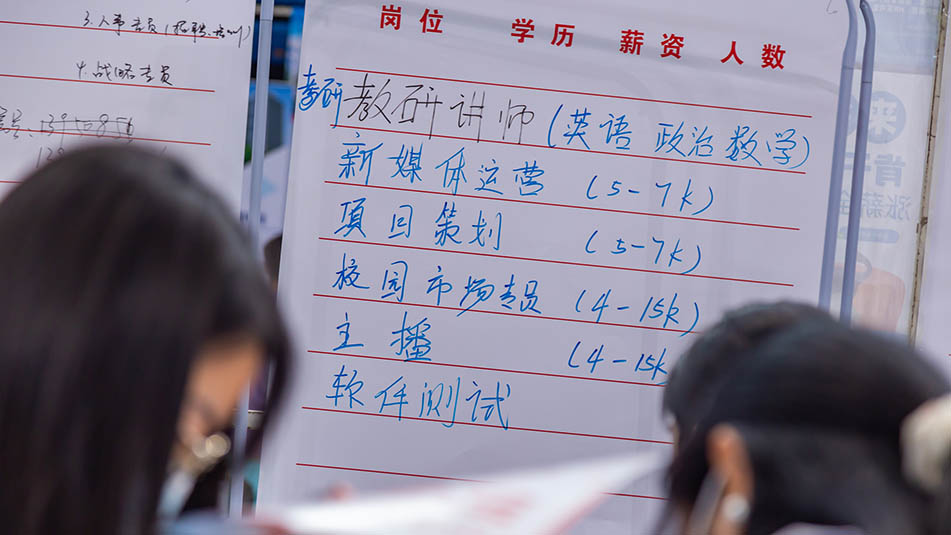 3.人事专员(招聘、培训)
4.战略专员
岗位 学历 薪资 人数
教研 教研讲师(英语 政治 数学)
新媒体运营 (5-7k)
项目策划 (5-7k)
校园市场专员 (4-15k)
主播 (4-15k
软件测试
来
肯
涨薪